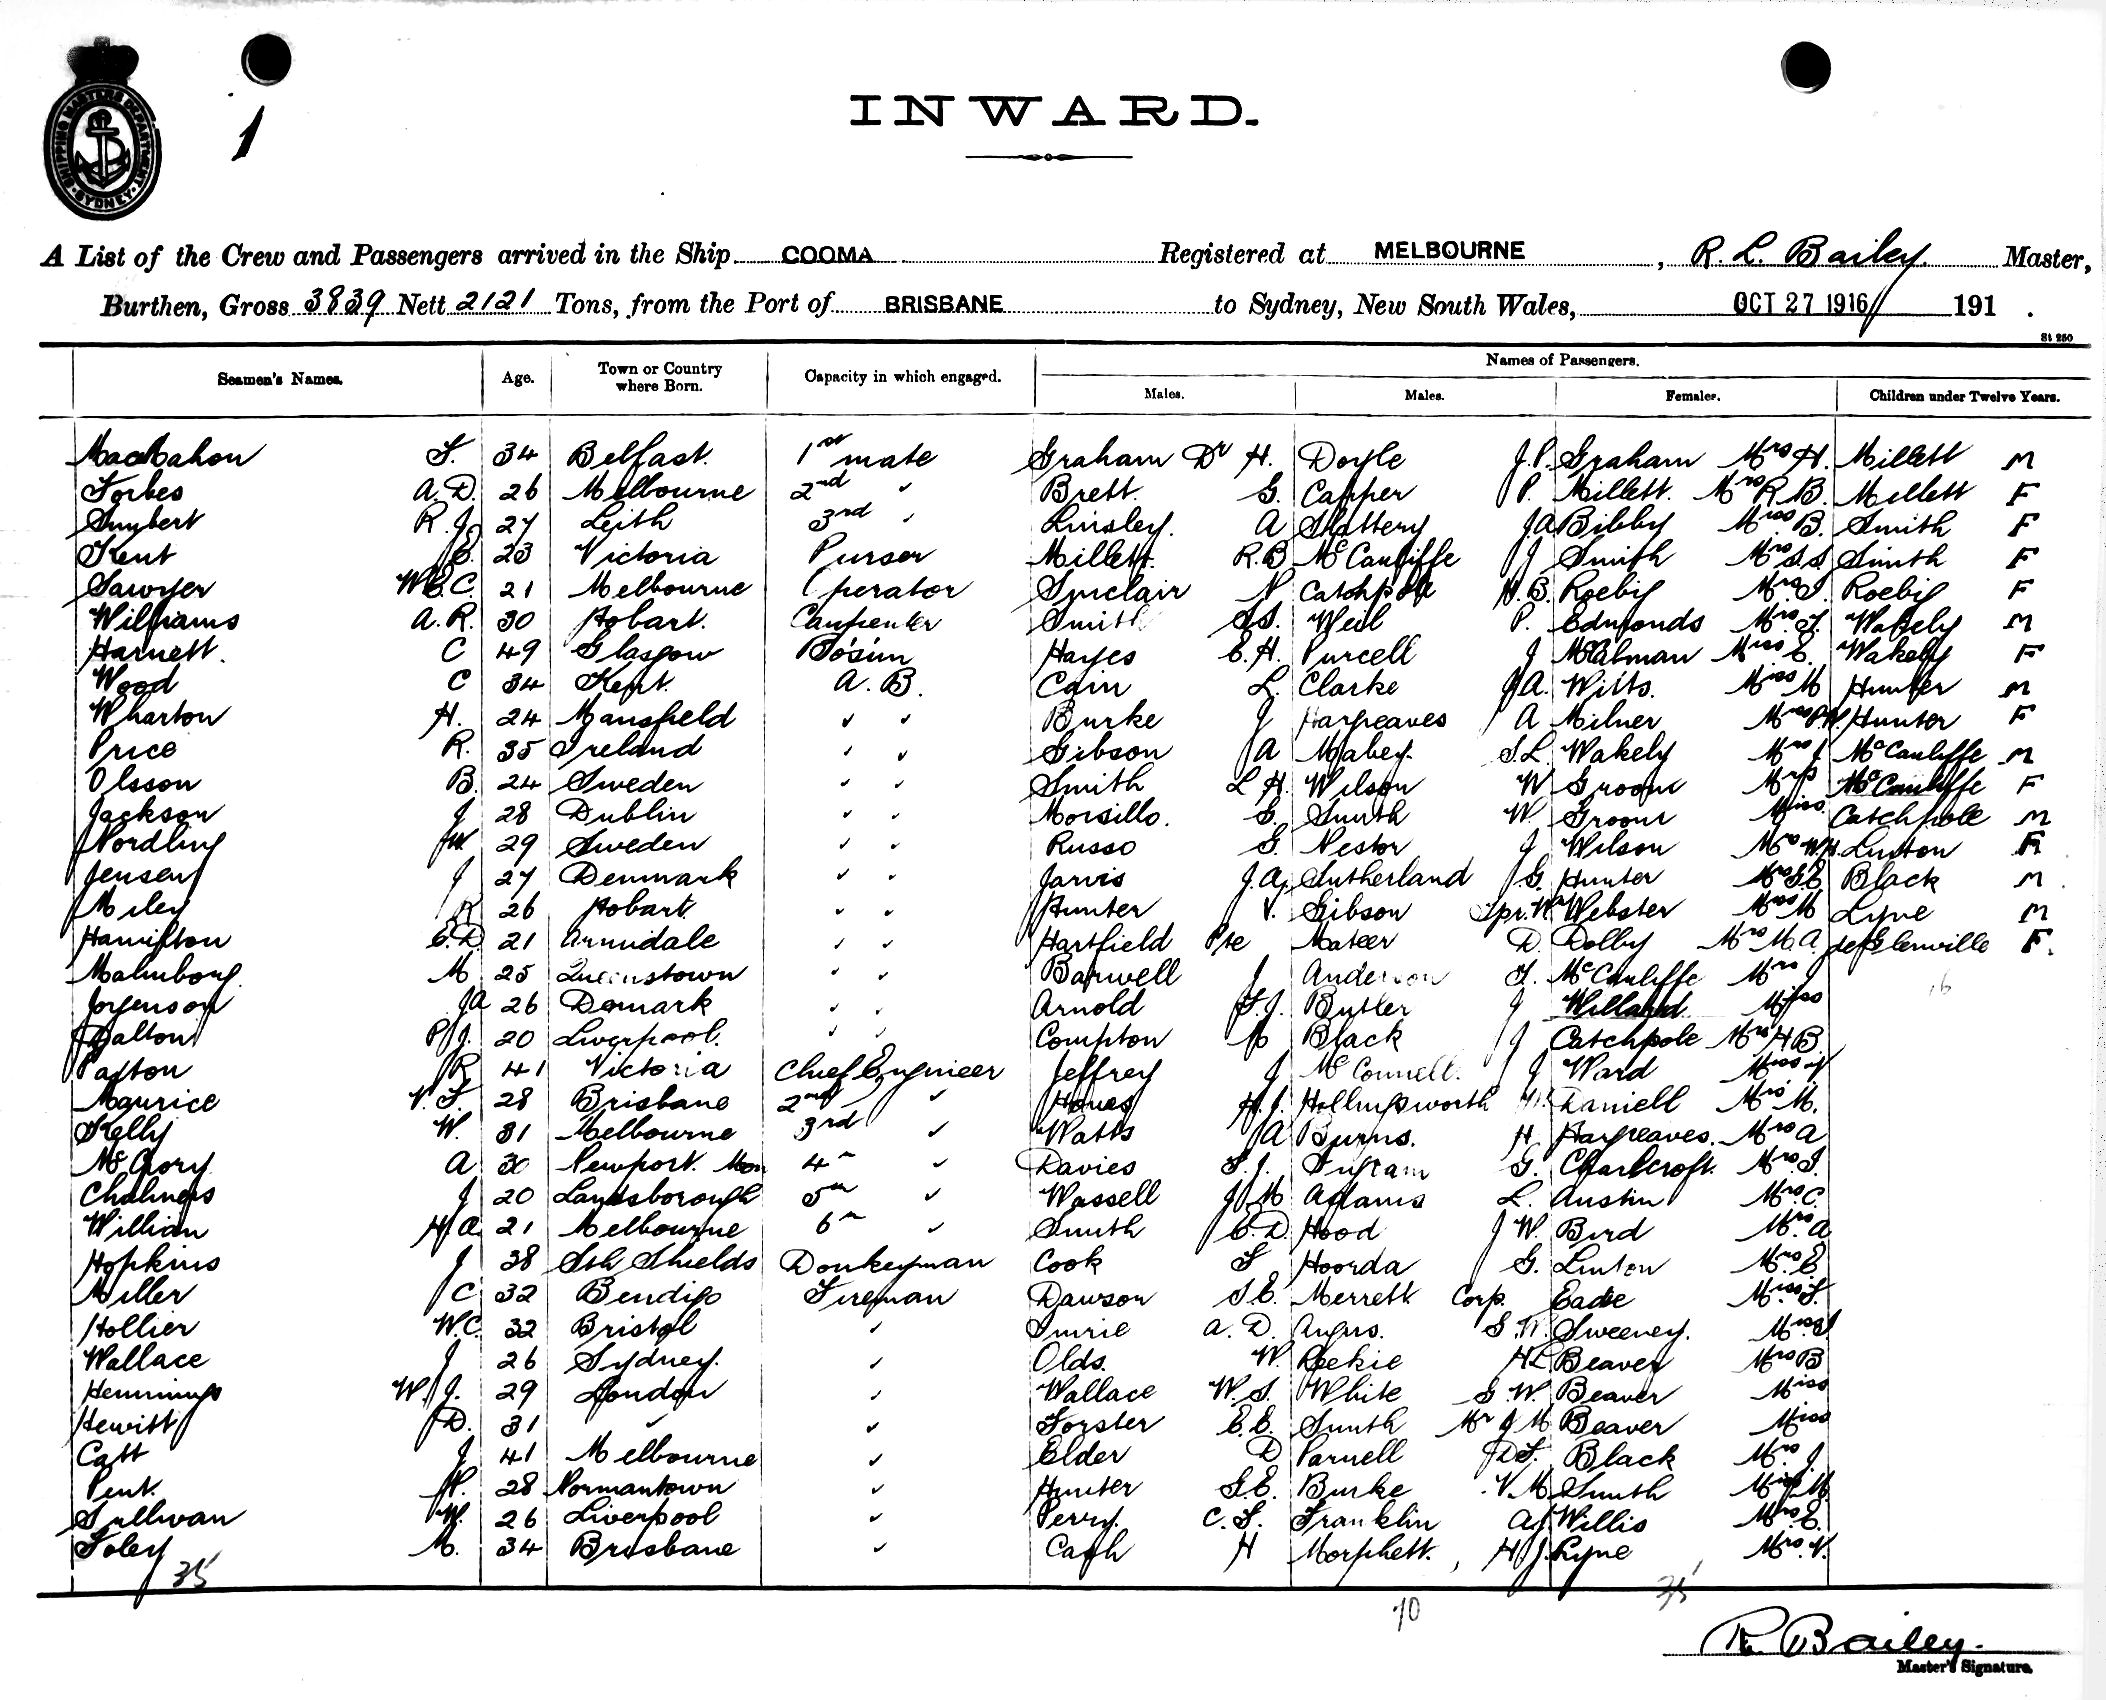 SHIPPING MASTERS DEPARTMENT
SYDNEY
1
INWARD.
A List of the Crew and Passengers arrived in the Ship COOMA Registered at MELBOURNE, R. L. Bailey Master,
Burthen, Gross 3839 Nett 2121 Tons, from the Port of BRISBANE to Sydney, New South Wales, OCT 27 1916 191 .
St 250
Seamen's Names. Age. Town or Country where Born. Capacity in which engaged. Names of Passengers.
Males. Males. Females. Children under Twelve Years.
MacMahon 34 Belfast. 1st mate Graham Dr H. Doyle J.P. Graham Mrs H. Millett M
Forbes A.D. 26 Melbourne 2nd " Brett. G. Capper P. Millett. Mrs R.B. Millett F
R.J. 27 Leith 3rd " Linsley. A Slattery J.A Bibby Miss B. Smith F
Kent 23 Victoria Purser Millett. R.B McCauliffe J Smith Mrs S.S. Smith F
Sawyer W.E.C. 21 Melbourne Operator Sinclair N Catchpole H.B. Roebig Mrs Roebig F
Williams A.R. 30 Hobart. Carpenter Smith S.S. Weil P. Edmonds Mrs Wakely M
Harnett. C 49 Glasgow Bosun Hayes E.H. Purcell J Miss E. Wakely F
Wood C 34 Kent. A.B. Cain L. Clarke J.A. Wilts. Miss M Hunter M
Wharton H. 24 Mansfield " " Burke J Hargreaves A Milner Mrs Hunter F
Price R. 35 Ireland " " Gibson A Mabey. S.L Wakely Mrs J McCauliffe M
Olsson B. 24 Sweden " " Smith L H. Wilson W Groom Mrs McCauliffe F
Jackson J 28 Dublin " " Morsillo. G. Smith W. Groom Miss Catchpole M
Nordling 29 Sweden " " Russo G. Nestor J Wilson Mrs W.H. Linton F
Jensen J 27 Denmark " " Jarvis J.A. Sutherland G. Hunter Mrs G.E Black M
Miley R 26 Hobart " " Hunter V. Gibson Spr. W Webster Miss M Lyne M
Hamilton E.D. 21 Armidale " " Hartfield Pte Mateer D. Dolby Mrs M.A. de Glenville F.
Malmborg. M 25 Queenstown " " Barwell J Anderson McCauliffe Mrs J
Jorgenson J A 26 Denmark " " Arnold F.J. Butler J Willard Miss 16
Dalton P J. 20 Liverpool. " " Compton Black J Catchpole Mrs H B
Paxton R 41 Victoria Chief Engineer Jeffrey J McConnell. J Ward Miss
Maurice 28 Brisbane 2nd " H.J. Hollingsworth Daniell Mrs M.
Kelly W. 31 Melbourne 3rd " Watts A Burns. H Hargreaves. Mrs A
McGrory A 30 Newport. Mon 4th " Davies Ingram G. Charlcroft. Mrs
Chalmers J 20 Landsborough 5th " Wassell J M Adams L. Austin Mrs C.
Willian H A 21 Melbourne 6th " Smith E.D. Hood J W. Bird Mrs A
Hopkins J 38 Sth Shields Donkeyman Cook Hoorda G. Linton Mrs E
Miller C 32 Bendigo Fireman Dawson S.E. Merrett Corp. Eadie Miss
Hollier W.C. 32 Bristol " Imrie A.D. Angus. Sweeney. Mrs
Wallace J 26 Sydney. " Olds. W. Reekie H L Beaver Mrs B
Hennings W. J. 29 London " Wallace W.S. White G.W. Beaver Miss
Hewitt D. 31 " " Forster E.E. Smith Mr J M Beaver Miss
Catt J 41 Melbourne " Elder D Parnell Black Mrs J
Pent. 28 Normantown " Hunter G.E. Burke V.M. Smith Miss M.
Sullivan W. 26 Liverpool " Perry. C.S. Franklin A J Willis Mrs E.
Foley M. 34 Brisbane " Cash H Morphett. H J. Lyne Mrs V.
35 70 35
R Bailey.
Master's Signature.